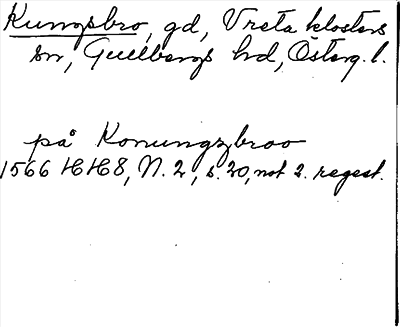 Kungsbro, gd, Vreta klosters
sn, Gullbergs hd, Österg. l.
på Konungzbroo
1566 HH8, N. 2, s. 20, not 2. regest.